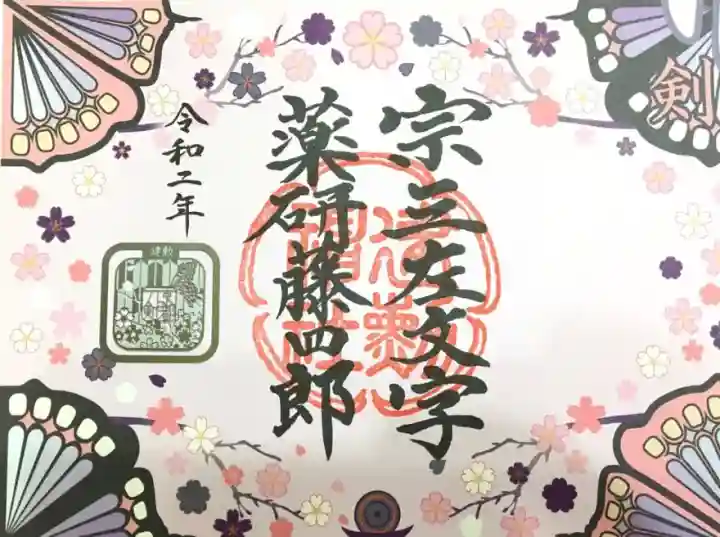 剣
宗三左文字
薬研藤四郎
令和二年
建勲